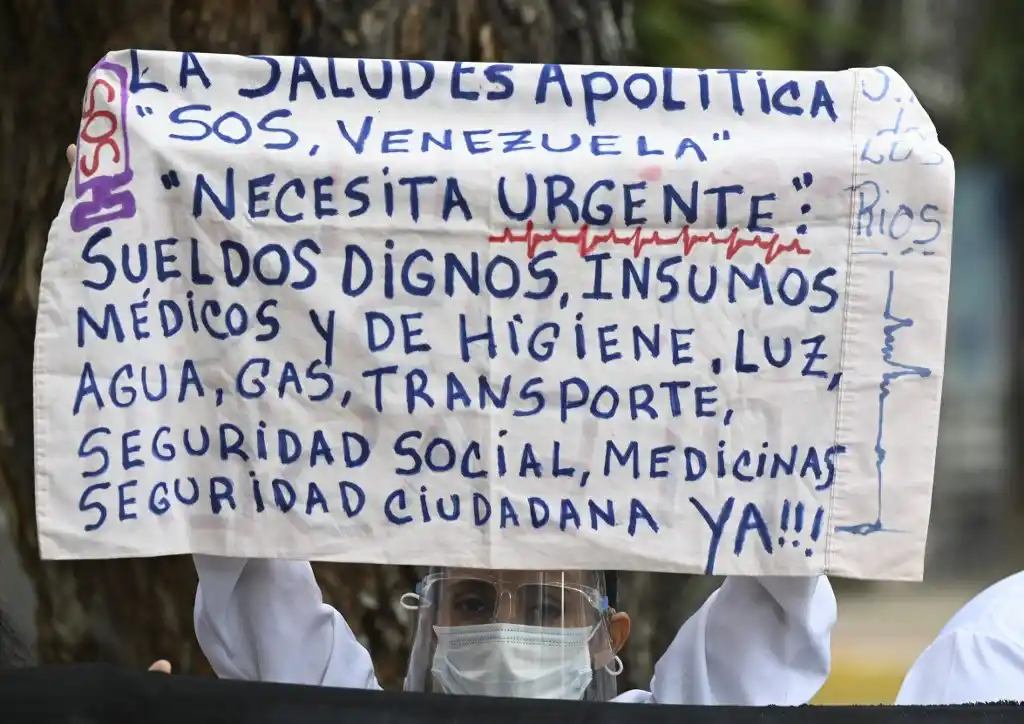 LA SALUD ES APOLÍTICA
"SOS, VENEZUELA"
"NECESITA URGENTE":
SUELDOS DIGNOS, INSUMOS
MÉDICOS Y DE HIGIENE, LUZ,
AGUA, GAS, TRANSPORTE,
SEGURIDAD SOCIAL, MEDICINAS
SEGURIDAD CIUDADANA YA!!!
SOS
RIOS